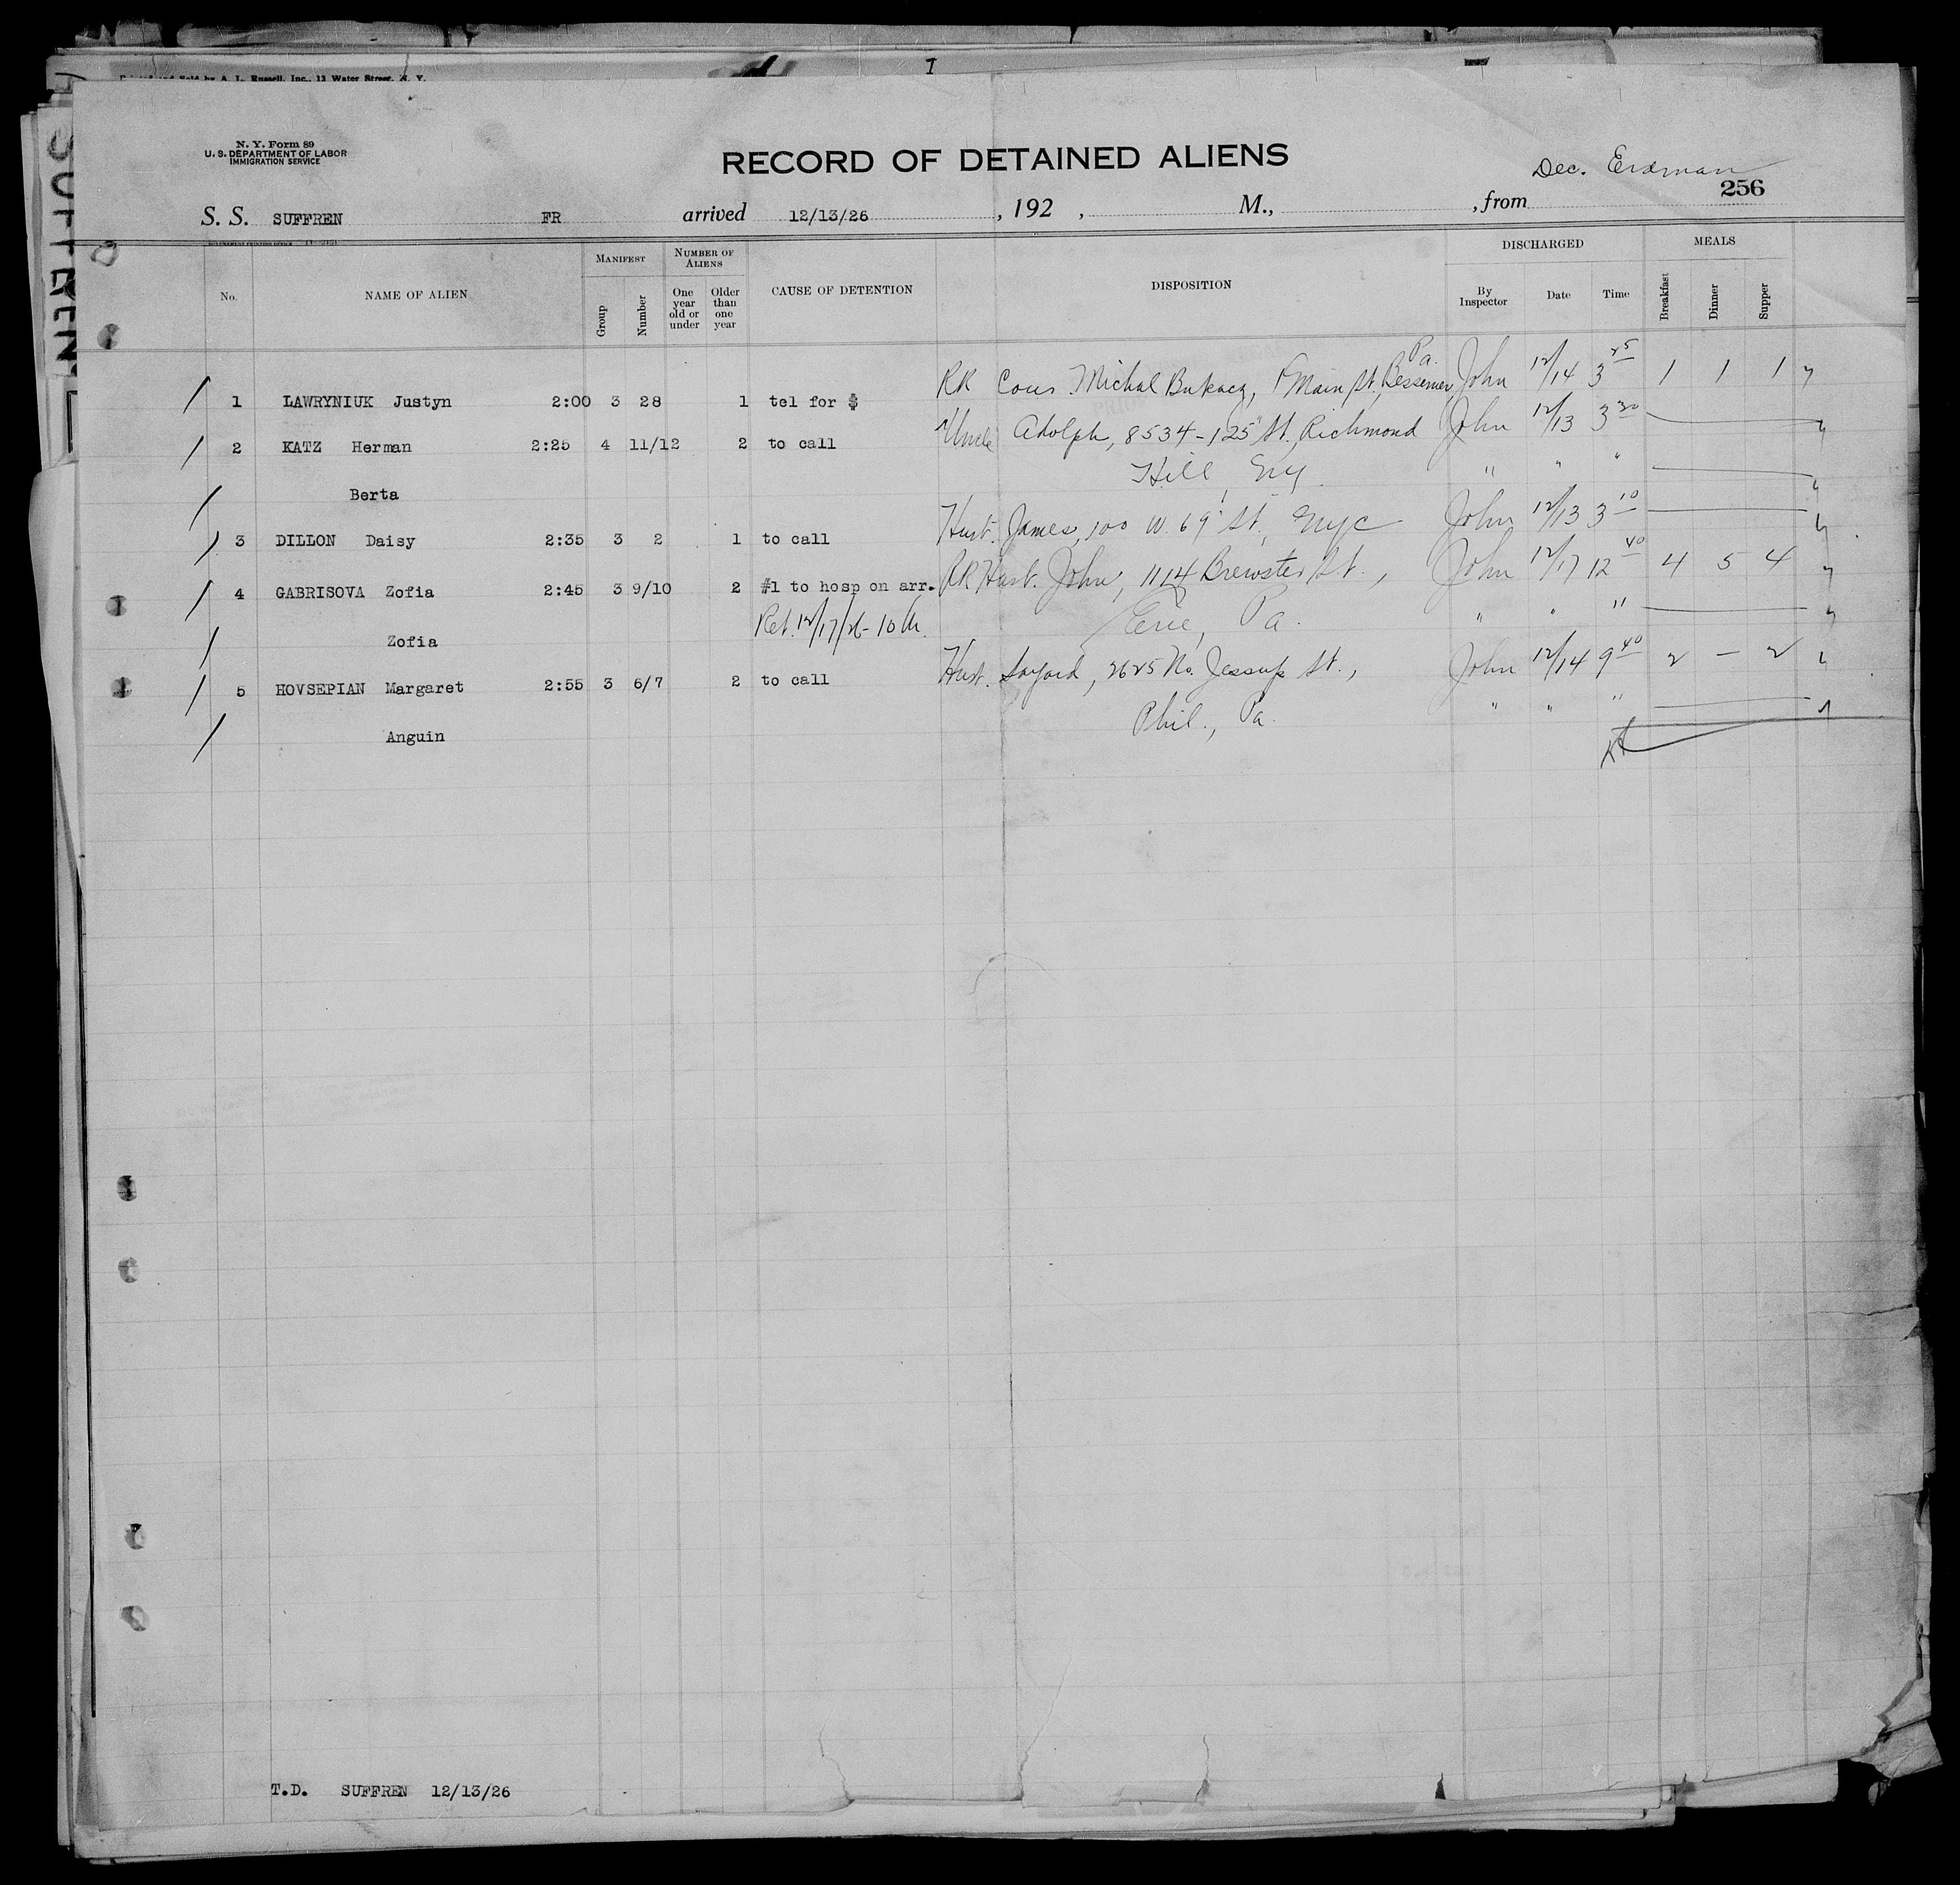 Printed and Sold by A. L. Russell, Inc., 13 Water Street, N. Y.
I
SUFFREN
N. Y. Form 89
U. S. DEPARTMENT OF LABOR
IMMIGRATION SERVICE
RECORD OF DETAINED ALIENS
Dec. Erdman
256
S. S. SUFFREN FR arrived 12/13/26 , 192 , M., , from
GOVERNMENT PRINTING OFFICE
No. NAME OF ALIEN MANIFEST Group Number NUMBER OF ALIENS One year old or under Older than one year CAUSE OF DETENTION DISPOSITION DISCHARGED By Inspector Date Time MEALS Breakfast Dinner Supper
1 LAWRYNIUK Justyn 2:00 3 28 1 tel for $ RR Cous. Michal Bukacz, Main St, Bessemer, Pa. John 12/14 3 25 1 1 1
2 KATZ Herman 2:25 4 11/12 2 to call Uncle Adolph, 8534-125" St., Richmond John 12/13 3 30
Berta Hill, NY. " " "
3 DILLON Daisy 2:35 3 2 1 to call Husb. James, 100 W. 69" St., NYC John 12/13 3 10
4 GABRISOVA Zofia 2:45 3 9/10 2 #1 to hosp on arr. RR Husb. John, 1114 Brewster St., John 12/17 12 40 4 5 4
Ret. 12/17/26-10 M.
Zofia Erie, Pa. " " "
5 HOVSEPIAN Margaret 2:55 3 6/7 2 to call Husb. 2625 No. Jessup St., John 12/14 9 40 2 - 2
Anguin Phil., Pa. " " "
T.D. SUFFREN 12/13/26